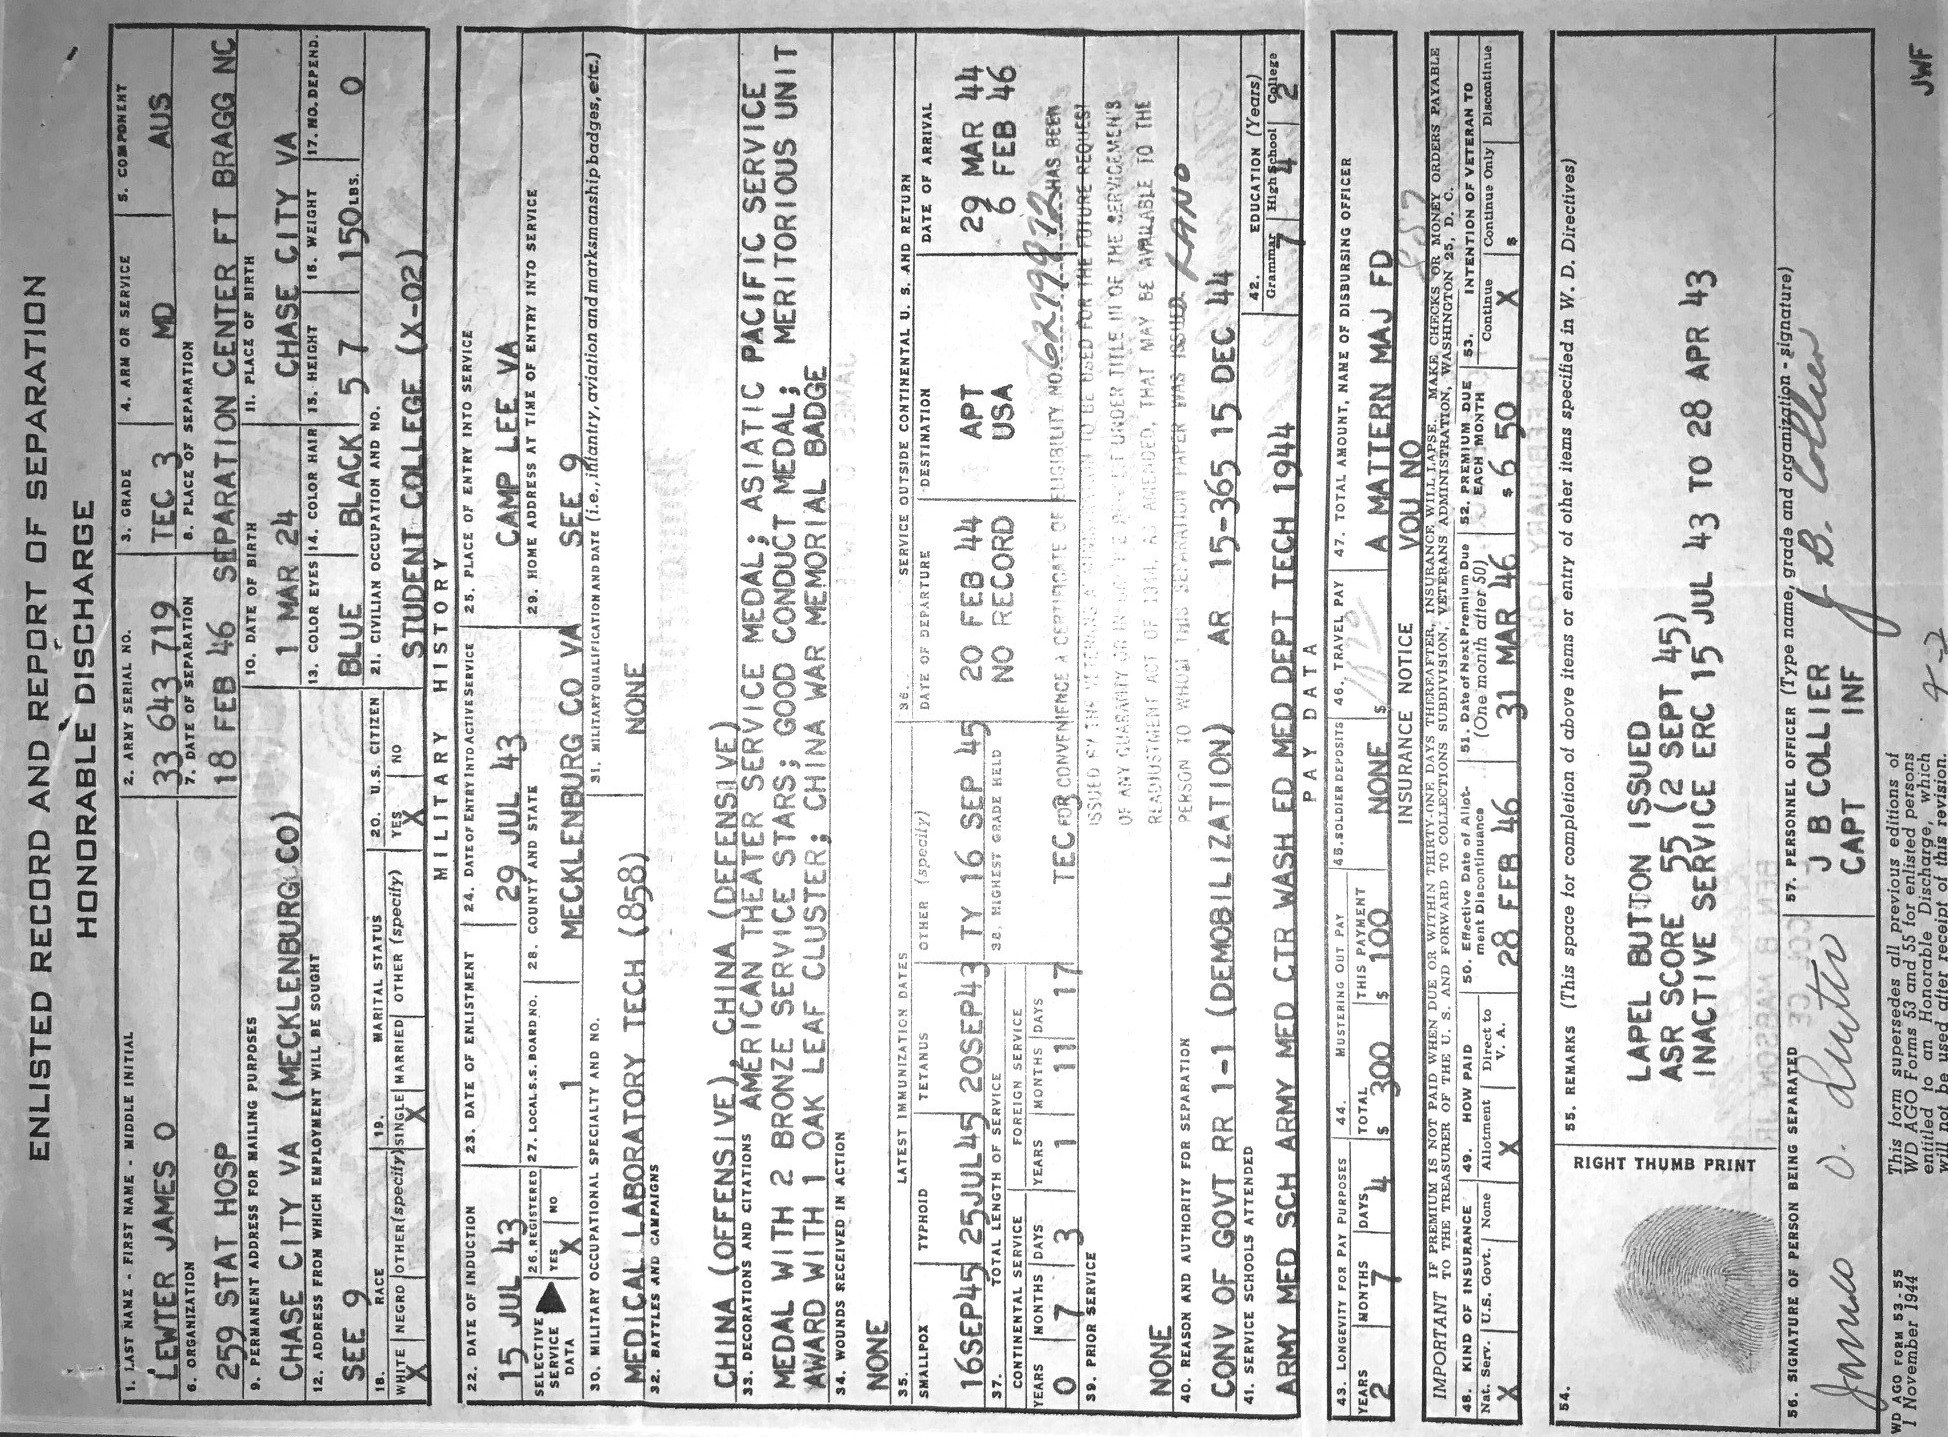 ENLISTED RECORD AND REPORT OF SEPARATION
HONORABLE DISCHARGE
1. LAST NAME - FIRST NAME - MIDDLE INITIAL
LEWTER JAMES O
2. ARMY SERIAL NO.
33 643 719
3. GRADE
TEC 3
4. ARM OR SERVICE
MD
5. COMPONENT
AUS
6. ORGANIZATION
259 STAT HOSP
7. DATE OF SEPARATION
18 FEB 46
8. PLACE OF SEPARATION
SEPARATION CENTER FT BRAGG NC
9. PERMANENT ADDRESS FOR MAILING PURPOSES
CHASE CITY VA (MECKLENBURG CO)
10. DATE OF BIRTH
1 MAR 24
11. PLACE OF BIRTH
CHASE CITY VA
12. ADDRESS FROM WHICH EMPLOYMENT WILL BE SOUGHT
SEE 9
13. COLOR EYES
BLUE
14. COLOR HAIR
BLACK
15. HEIGHT
5 7
16. WEIGHT
150 LBS.
17. NO. DEPEND.
0
18. RACE
WHITE NEGRO OTHER (specify)
X
19. MARITAL STATUS
SINGLE MARRIED OTHER (specify)
X
20. U.S. CITIZEN
YES NO
X
21. CIVILIAN OCCUPATION AND NO.
STUDENT COLLEGE (X-02)
MILITARY HISTORY
22. DATE OF INDUCTION
15 JUL 43
23. DATE OF ENLISTMENT
24. DATE OF ENTRY INTO ACTIVE SERVICE
29 JUL 43
25. PLACE OF ENTRY INTO SERVICE
CAMP LEE VA
SELECTIVE SERVICE DATA
26. REGISTERED
YES NO
X
27. LOCAL S.S. BOARD NO.
1
28. COUNTY AND STATE
MECKLENBURG CO VA
29. HOME ADDRESS AT TIME OF ENTRY INTO SERVICE
SEE 9
30. MILITARY OCCUPATIONAL SPECIALTY AND NO.
MEDICAL LABORATORY TECH (858)
31. MILITARY QUALIFICATION AND DATE (i.e., infantry, aviation and marksmanship badges, etc.)
NONE
32. BATTLES AND CAMPAIGNS
CHINA (OFFENSIVE), CHINA (DEFENSIVE)
33. DECORATIONS AND CITATIONS
AMERICAN THEATER SERVICE MEDAL; ASIATIC PACIFIC SERVICE
MEDAL WITH 2 BRONZE SERVICE STARS; GOOD CONDUCT MEDAL; MERITORIOUS UNIT
AWARD WITH 1 OAK LEAF CLUSTER; CHINA WAR MEMORIAL BADGE
34. WOUNDS RECEIVED IN ACTION
NONE
35. LATEST IMMUNIZATION DATES
SMALLPOX TYPHOID TETANUS OTHER (specify)
16SEP45 25JUL45 20SEP43 TY 16 SEP 45
36. SERVICE OUTSIDE CONTINENTAL U. S. AND RETURN
DATE OF DEPARTURE DESTINATION DATE OF ARRIVAL
20 FEB 44 APT 29 MAR 44
NO RECORD USA 6 FEB 46
37. TOTAL LENGTH OF SERVICE
CONTINENTAL SERVICE FOREIGN SERVICE
YEARS MONTHS DAYS YEARS MONTHS DAYS
0 7 3 1 11 17
38. HIGHEST GRADE HELD
TEC 3
FOR CONVENIENCE A CERTIFICATE OF ELIGIBILITY NO. 6279972 HAS BEEN
ISSUED BY THE VETERANS ADMINISTRATION TO BE USED FOR THE FUTURE REQUEST
OF ANY GUARANTY OR INSURANCE UNDER TITLE III OF THE SERVICEMEN'S
READJUSTMENT ACT OF 1944, AS AMENDED, THAT MAY BE AVAILABLE TO THE
PERSON TO WHOM THIS SEPARATION PAPER WAS ISSUED.
39. PRIOR SERVICE
NONE
40. REASON AND AUTHORITY FOR SEPARATION
CONV OF GOVT RR 1-1 (DEMOBILIZATION) AR 15-365 15 DEC 44
41. SERVICE SCHOOLS ATTENDED
ARMY MED SCH ARMY MED CTR WASH ED MED DEPT TECH 1944
42. EDUCATION (Years)
Grammar High School College
7 4 2
PAY DATA
43. LONGEVITY FOR PAY PURPOSES
YEARS MONTHS DAYS
2 7 4
44. MUSTERING OUT PAY
TOTAL THIS PAYMENT
$ 300 $ 100
45. SOLDIER DEPOSITS
NONE
46. TRAVEL PAY
$
47. TOTAL AMOUNT, NAME OF DISBURSING OFFICER
A MATTERN MAJ FD
VOU NO
INSURANCE NOTICE
IMPORTANT IF PREMIUM IS NOT PAID WHEN DUE OR WITHIN THIRTY-ONE DAYS THEREAFTER, INSURANCE WILL LAPSE. MAKE CHECKS OR MONEY ORDERS PAYABLE
TO THE TREASURER OF THE U. S. AND FORWARD TO COLLECTIONS SUBDIVISION, VETERANS ADMINISTRATION, WASHINGTON 25, D. C.
48. KIND OF INSURANCE
Nat. Serv. U.S. Govt. None
X
49. HOW PAID
Allotment Direct to V. A.
X
50. Effective Date of Allotment Discontinuance
28 FEB 46
51. Date of Next Premium Due (One month after 50)
31 MAR 46
52. PREMIUM DUE EACH MONTH
$ 6 50
53. INTENTION OF VETERAN TO
Continue Continue Only Discontinue
X $
54.
RIGHT THUMB PRINT
55. REMARKS (This space for completion of above items or entry of other items specified in W. D. Directives)
LAPEL BUTTON ISSUED
ASR SCORE 55 (2 SEPT 45)
INACTIVE SERVICE ERC 15 JUL 43 TO 28 APR 43
56. SIGNATURE OF PERSON BEING SEPARATED
James O. Lewter
57. PERSONNEL OFFICER (Type name, grade and organization - signature)
J B COLLIER
CAPT INF
J B. Collier
WD AGO FORM 53-55
1 November 1944
This form supersedes all previous editions of
WD AGO Forms 53 and 55 for enlisted persons
entitled to an Honorable Discharge, which
will not be used after receipt of this revision.
JWF